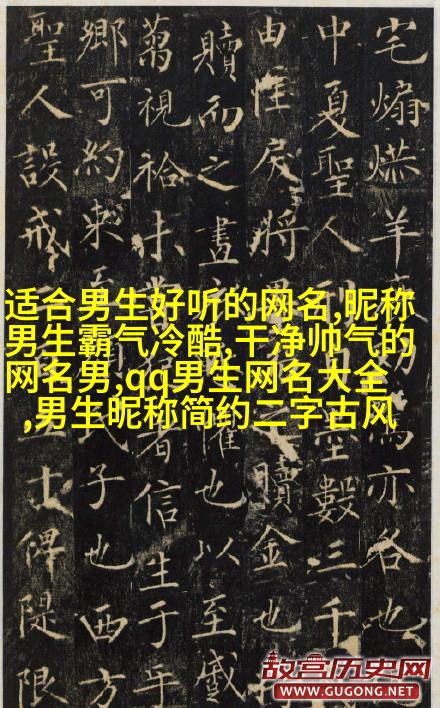 宅煽羊焉亦各也
中夏聖人數三千
由惟戾將贖金也
贖而之畫也以至戚
視者信生于年
鄉可約束子也西方
聖人設戒士俾隄限
适合男生好听的网名,昵称
男生霸气冷酷,干净帅气的
网名男,qq男生网名大全
,男生昵称简约二字古风
故宫历史网
WWW.GUGONG.NET